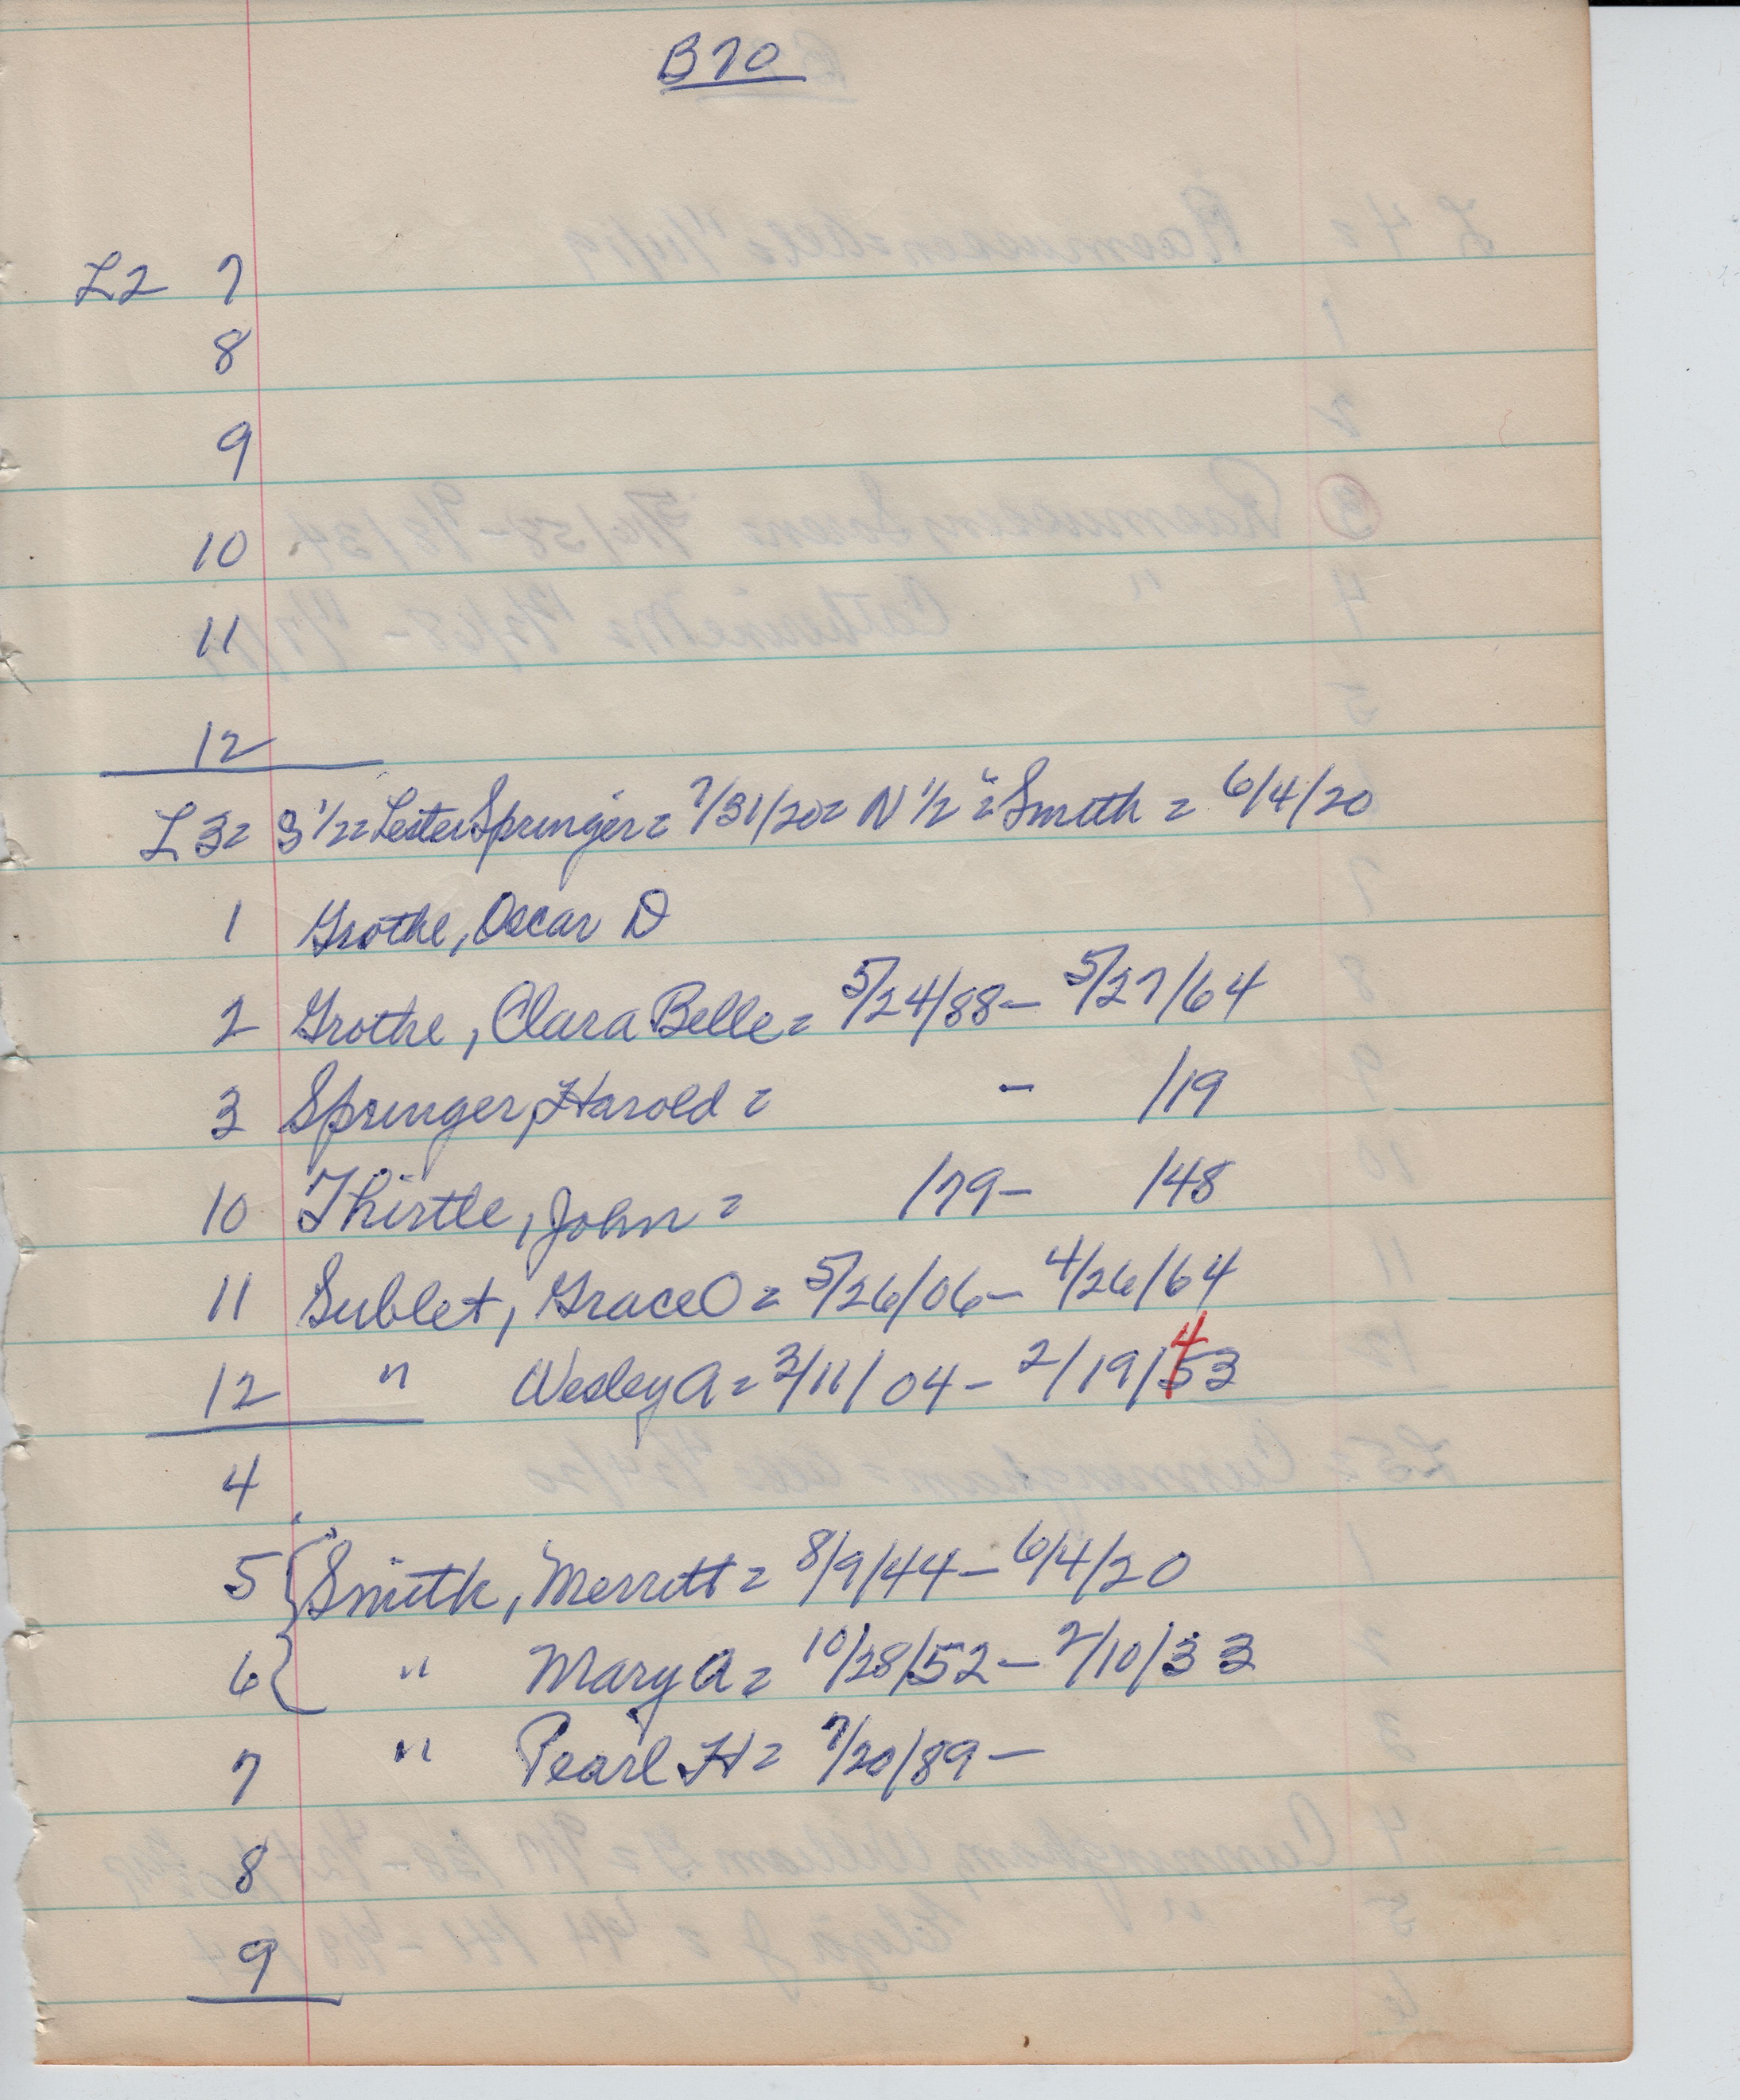 B70
L2 7
8
9
10
11
12
L3= S 1/2= Lester Springer= 7/31/20= N 1/2 "= Smith = 6/4/20
1 Grothe, Oscar D
2 Grothe, Clara Belle= 5/24/88- 5/27/64
3 Springer, Harold= - /19
10 Thirtle, John= /79- /48
11 Sublet, Grace O= 5/26/06- 4/26/64
12 " Wesley A= 3/11/04- 2/19/53 4
4
5 { Smith, Merritt= 8/9/44- 6/4/20
6 { " Mary A= 10/28/52- 2/10/33
7 " Pearl H= 7/20/89-
8
9